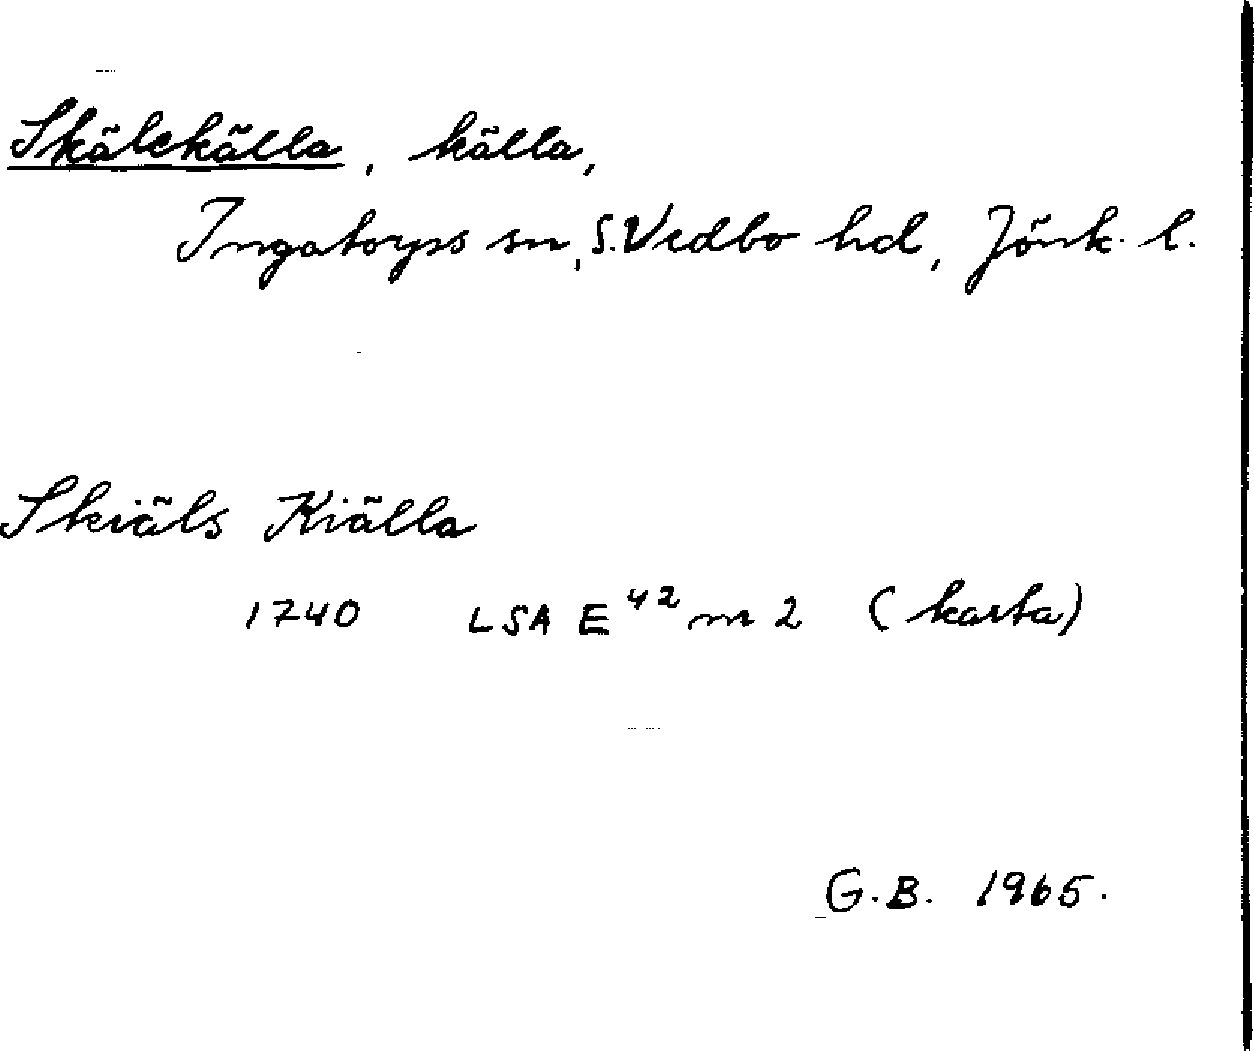 Skälekälla, källa,
Ingatorps sn, S. Vedbo hd, Jönk. l.
Skiäls Kiälla
1740 LSA E⁴² nr 2 (karta)
G.B. 1965.